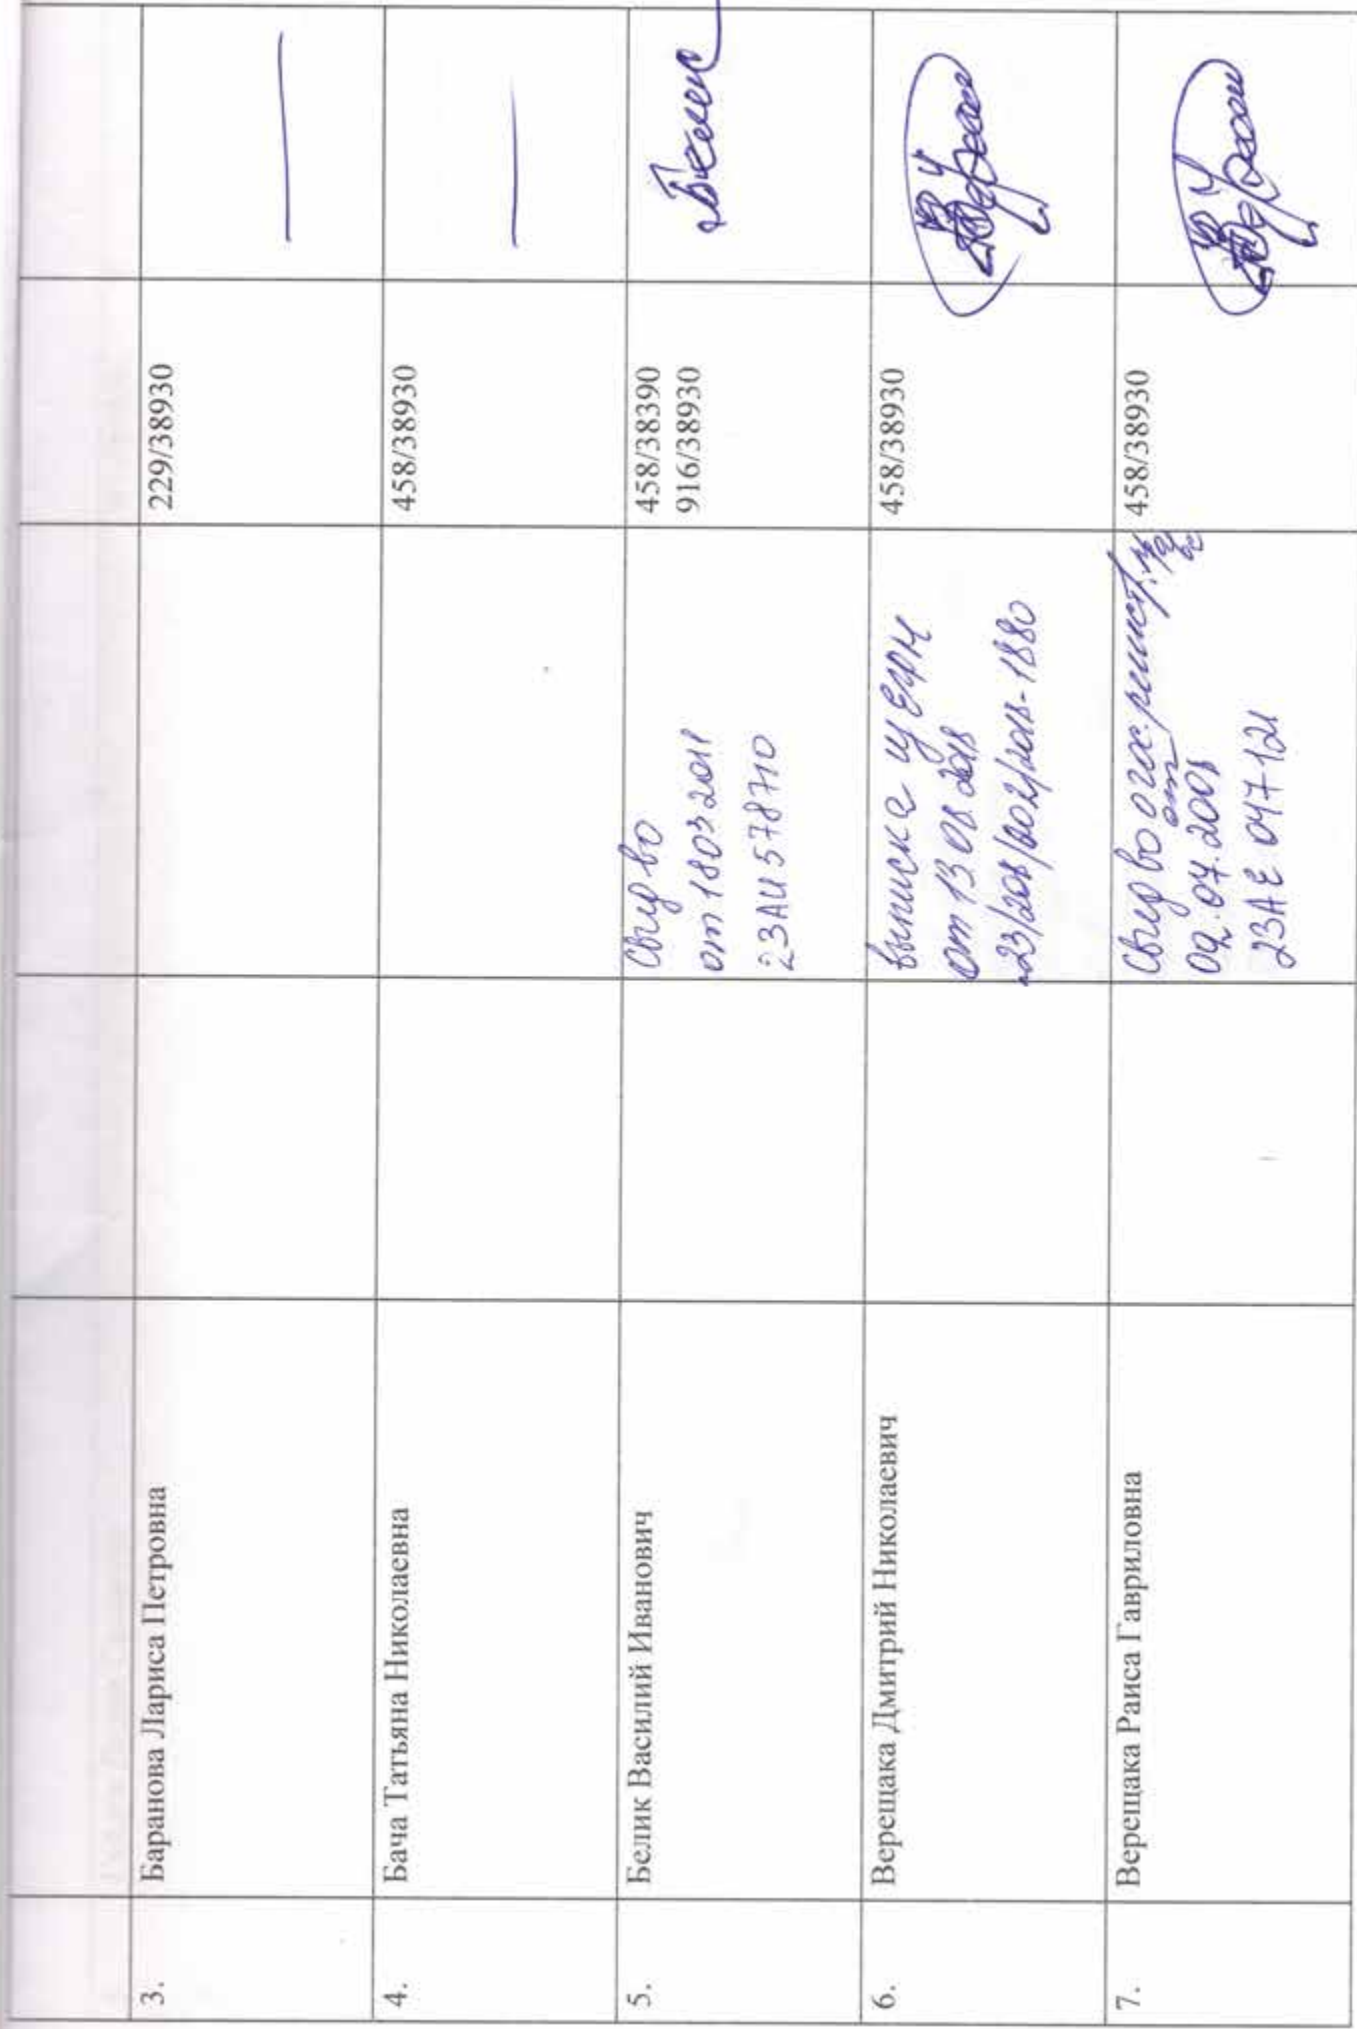 3.
Баранова Лариса Петровна
229/38930
4.
Бача Татьяна Николаевна
458/38930
5.
Белик Василий Иванович
Свид во
от 18 03 2011
23 АИ 578710
458/38390
916/38930
6.
Верещака Дмитрий Николаевич
выписка из ЕГРН
от 13 08 2018
458/38930
7.
Верещака Раиса Гавриловна
Свид во о гос. регистр.
от
23АЕ 047121
458/38930